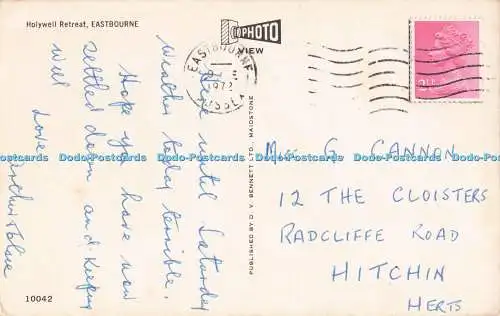 Holywell Retreat, EASTBOURNE
PHOTO
VIEW
EASTBOURNE
1972
SUSSEX
2½P
Here until Saturday
Weather today terrible.
Hope you have now
settled down and keeping
well
Love
PUBLISHED BY D. V. BENNETT LTD., MAIDSTONE
Miss G CANNON
12 THE CLOISTERS
RADCLIFFE ROAD
HITCHIN
HERTS
10042
Dodo-Postcards Dodo-Postcards Dodo-Postcards Dodo-Postcards Dodo-Postcards